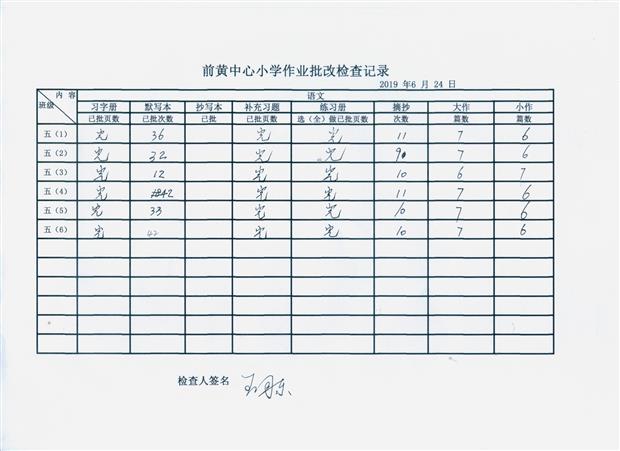 前黄中心小学作业批改检查记录
2019 年6 月 24 日
内 容 语文
班级 习字册 默写本 抄写本 补充习题 练习册 摘抄 大作 小作
已批页数 已批次数 已批 已批页数 选（全）做已批页数 次数 篇数 篇数
五（1） 完 36 完 完 11 7 6
五（2） 完 32 完 完 7 6
五（3） 完 12 完 完 10 6 7
五（4） 完 42 完 完 11 7 6
五（5） 完 33 完 完 10 7 6
五（6） 完 42 完 完 10 7 6
检查人签名